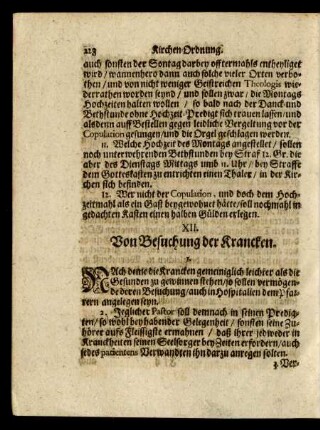 228 Kirchen-Ordnung.
auch sonsten der Sontag darbey offtermahls entheyliget
wird / wannenhero dann auch solche vieler Orten verbo-
then / und von nicht weniger Geistreichen Theologis wie-
derrathen worden seynd / und sollen zwar / die Montags
Hochzeiten halten wollen / so bald nach der Danck und
Bethstunde ohne Hochzeit-Predigt sich trauen lassen / und
alsdenn auff Bestellen gegen leidliche Vergeltung vor der
Copulation gesungen / und die Orgel geschlagen werden.
11. Welche Hochzeit des Montags angestellet / sollen
noch unterwehrenden Bethstunden bey Straf 12. Gr. die
aber des Dienstags Mittags umb 11. Uhr / bey Straffe
dem Gotteskasten zu entrichten einen Thaler / in der Kir-
chen sich befinden.
12. Wer nicht der Copulation, und doch dem Hoch-
zeitmahl als ein Gast beygewohnet hätte / soll nochmahl in
gedachten Kasten einen halben Gülden erlegen.
XII.
Von Besuchung der Krancken.
1.
NAch deme die Krancken gemeiniglich leichter als die
Gesunden zu gewinnen stehen / so sollen vermögen-
de deren Besuchung / auch in Hospitalien dem Pfar-
rern angelegen seyn.
2. Jeglicher Pastor soll demnach in seinen Predig-
ten / so wohl bey habender Gelegenheit / sonsten seine Zu-
hörer auffs Fleissigste ermahnen / daß ihrer jedweder in
Kranckheiten seinen Seelsorger bey Zeiten erfordern / auch
jedes patientens Verwandten ihn darzu anregen solten.
3. Ver-